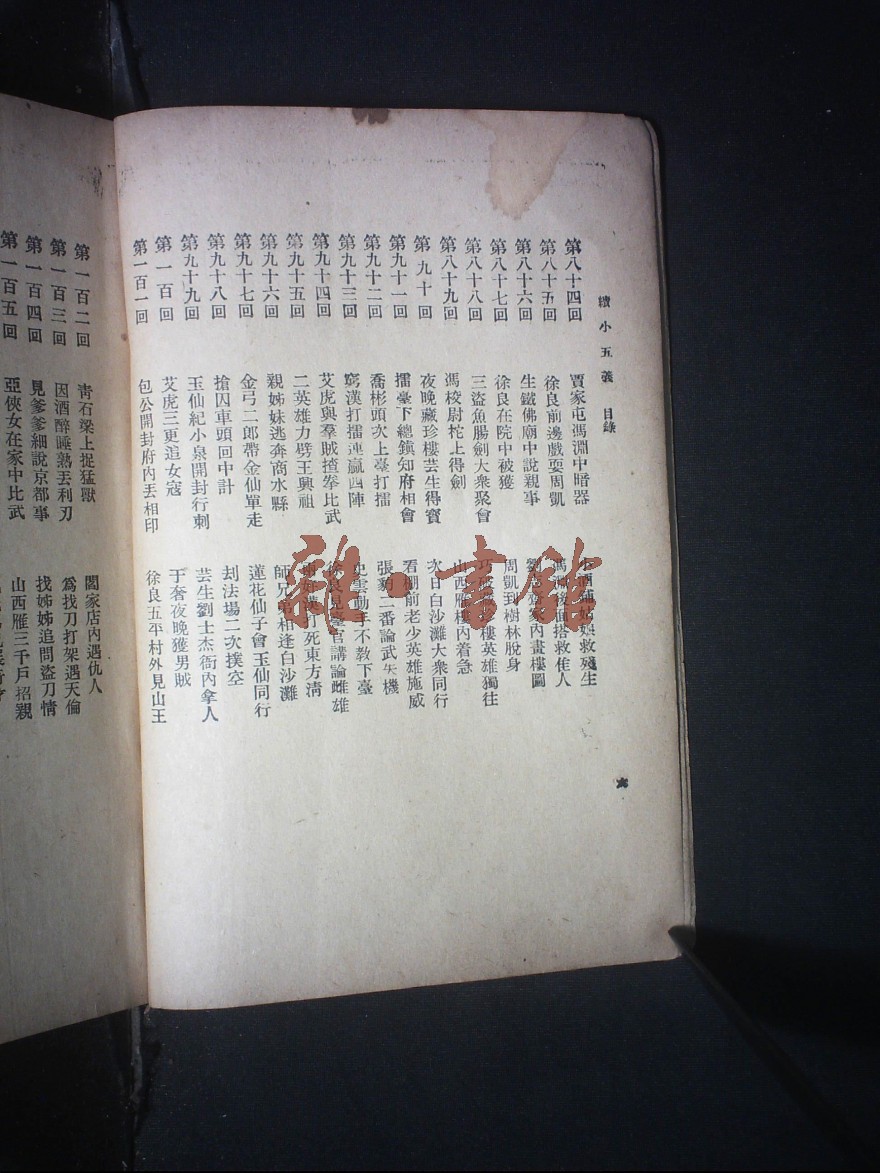 續小五義 目錄
第八十四回 賈家屯馮淵中暗器 救殘生
第八十五回 徐良前邊戲耍周凱 馮淵後面搭救隹人
第八十六回 生鐵佛廟中說親事 劉志齊家內畫樓圖
第八十七回 徐良在院中被獲 周凱到樹林脫身
第八十八回 三盜魚腸劍大衆聚會 巧破樓英雄獨往
第八十九回 馮校尉柁上得劍 山西雁樓內着急
第九十回 夜晚藏珍樓芸生得寳 次日白沙灘大衆同行
第九十一回 擂臺下總鎮知府相會 看棚前老少英雄施威
第九十二回 喬彬頭次上臺打擂 張豹二番論武失機
第九十三回 窮漢打擂連贏四陣 史雲動手不教下臺
第九十四回 艾虎與羣賊揸拳比武 徐良見臺官講論雌雄
第九十五回 二英雄力劈王興祖 兩好漢打死東方清
第九十六回 親姊妹逃奔商水縣 師兄弟相逢白沙灘
第九十七回 金弓二郎帶金仙單走 蓮花仙子會玉仙同行
第九十八回 搶囚車頭回中計 刦法場二次撲空
第九十九回 玉仙紀小泉開封行刺 芸生劉士杰衙內拿人
第一百回 艾虎三更追女寇 于奢夜晚獲男賊
第一百一回 包公開封府內丟相印 徐良五平村外見山王
六
第一百二回 靑石梁上捉猛獸 閻家店內遇仇人
第一百三回 因酒醉睡熟丟利刃 爲找刀打架遇天倫
第一百四回 見爹爹細說京都事 找姊姊追問盜刀情
第一百五回 亞俠女在家中比武 山西雁三千戶招親
雜·書館